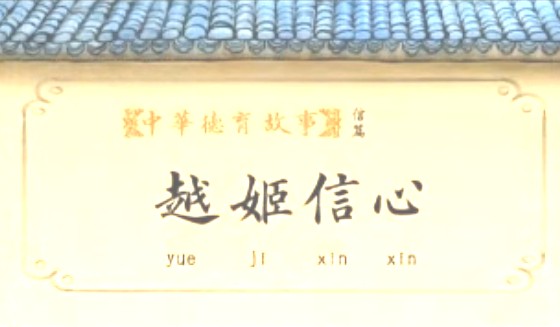 中華德育故事 信篇
越姬信心
yue ji xin xin